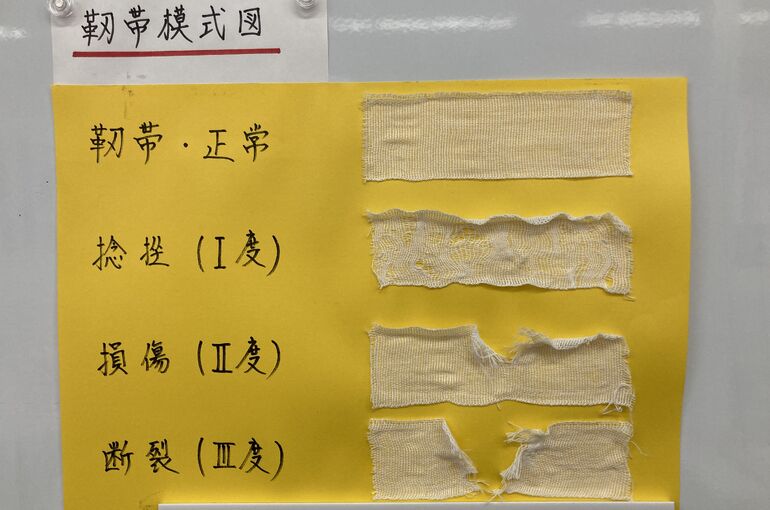 靭帯模式図
靭帯・正常
捻挫(Ⅰ度)
損傷(Ⅱ度)
断裂(Ⅲ度)